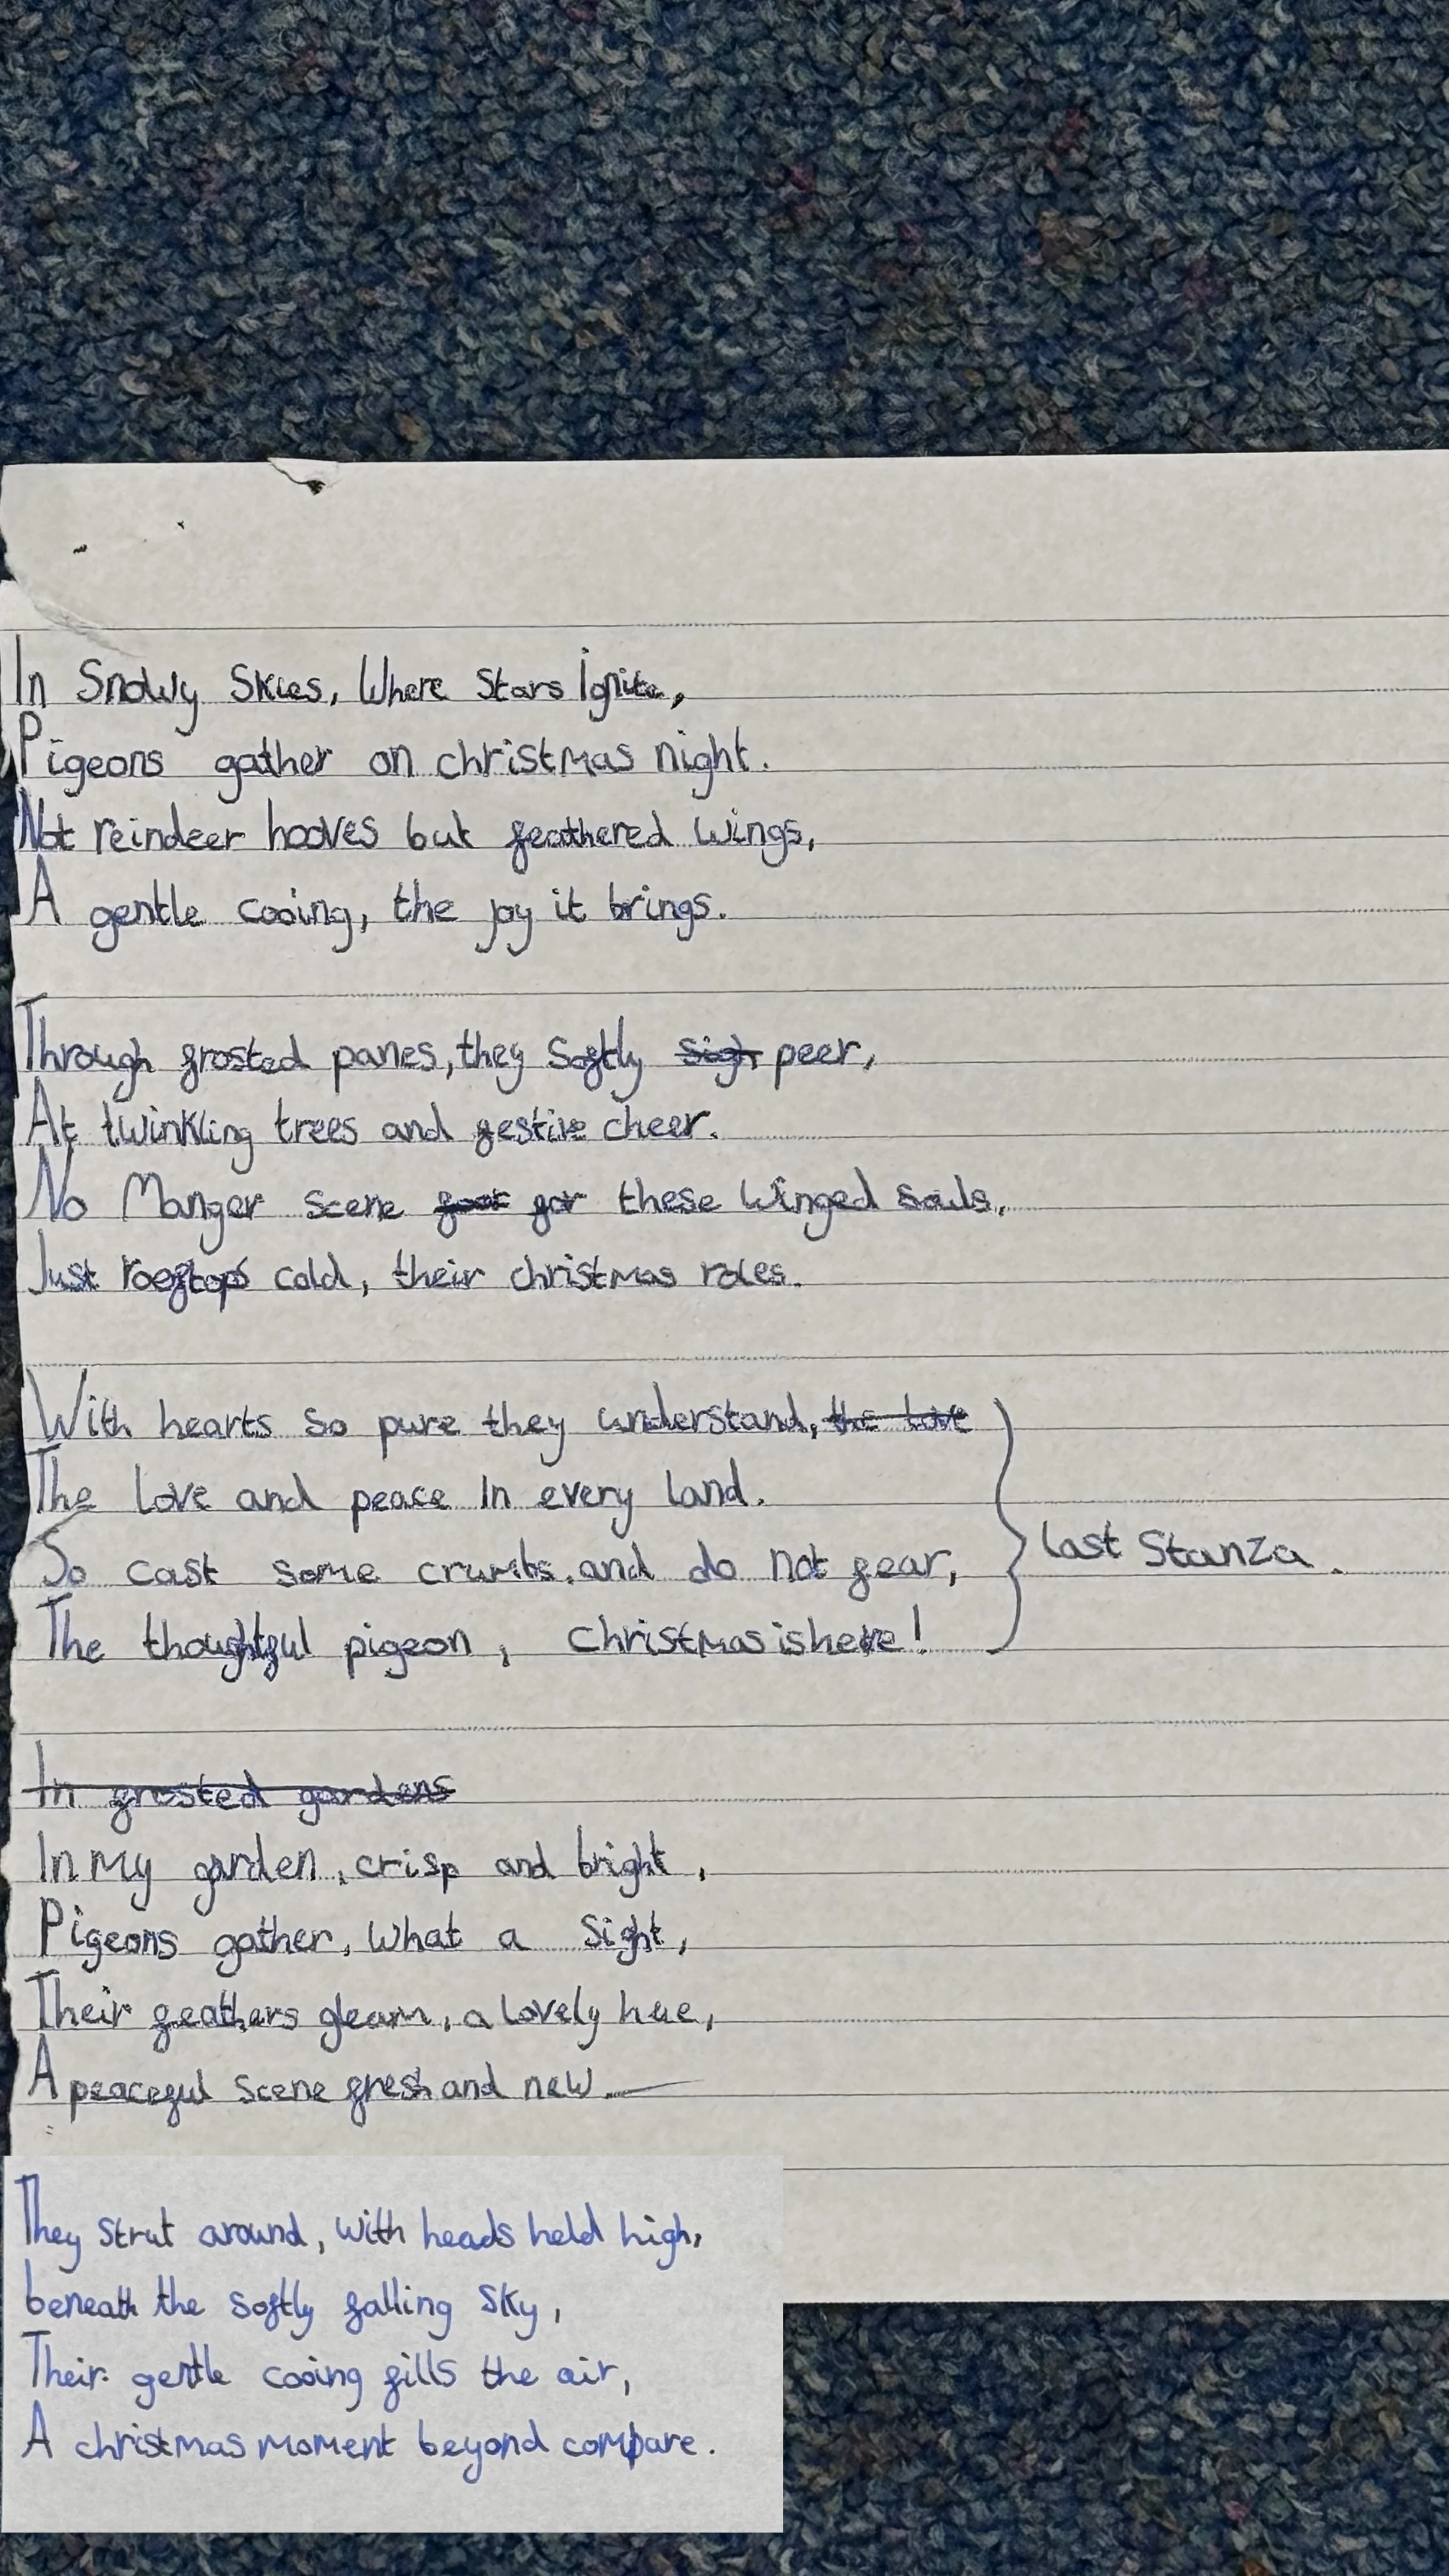 In Snowy Skies, Where Stars Ignite,
Pigeons gather on christmas night.
Not reindeer hooves but feathered wings,
A gentle cooing, the joy it brings.
Through frosted panes, they Softly sigh peer,
At twinkling trees and festive cheer.
No Manger scene foor for these winged souls,
Just rooftops cold, their christmas roles.
With hearts so pure they understand, the love
The love and peace in every land.
So cast some crumbs, and do not fear,
The thoughtful pigeon, christmas is here!
last Stanza.
In frosted gardens
In My garden, crisp and bright,
Pigeons gather, what a Sight,
Their feathers gleam, a lovely hue,
A peaceful scene fresh and new.
They strut around, with heads held high,
beneath the softly falling sky,
Their gentle cooing fills the air,
A christmas moment beyond compare.